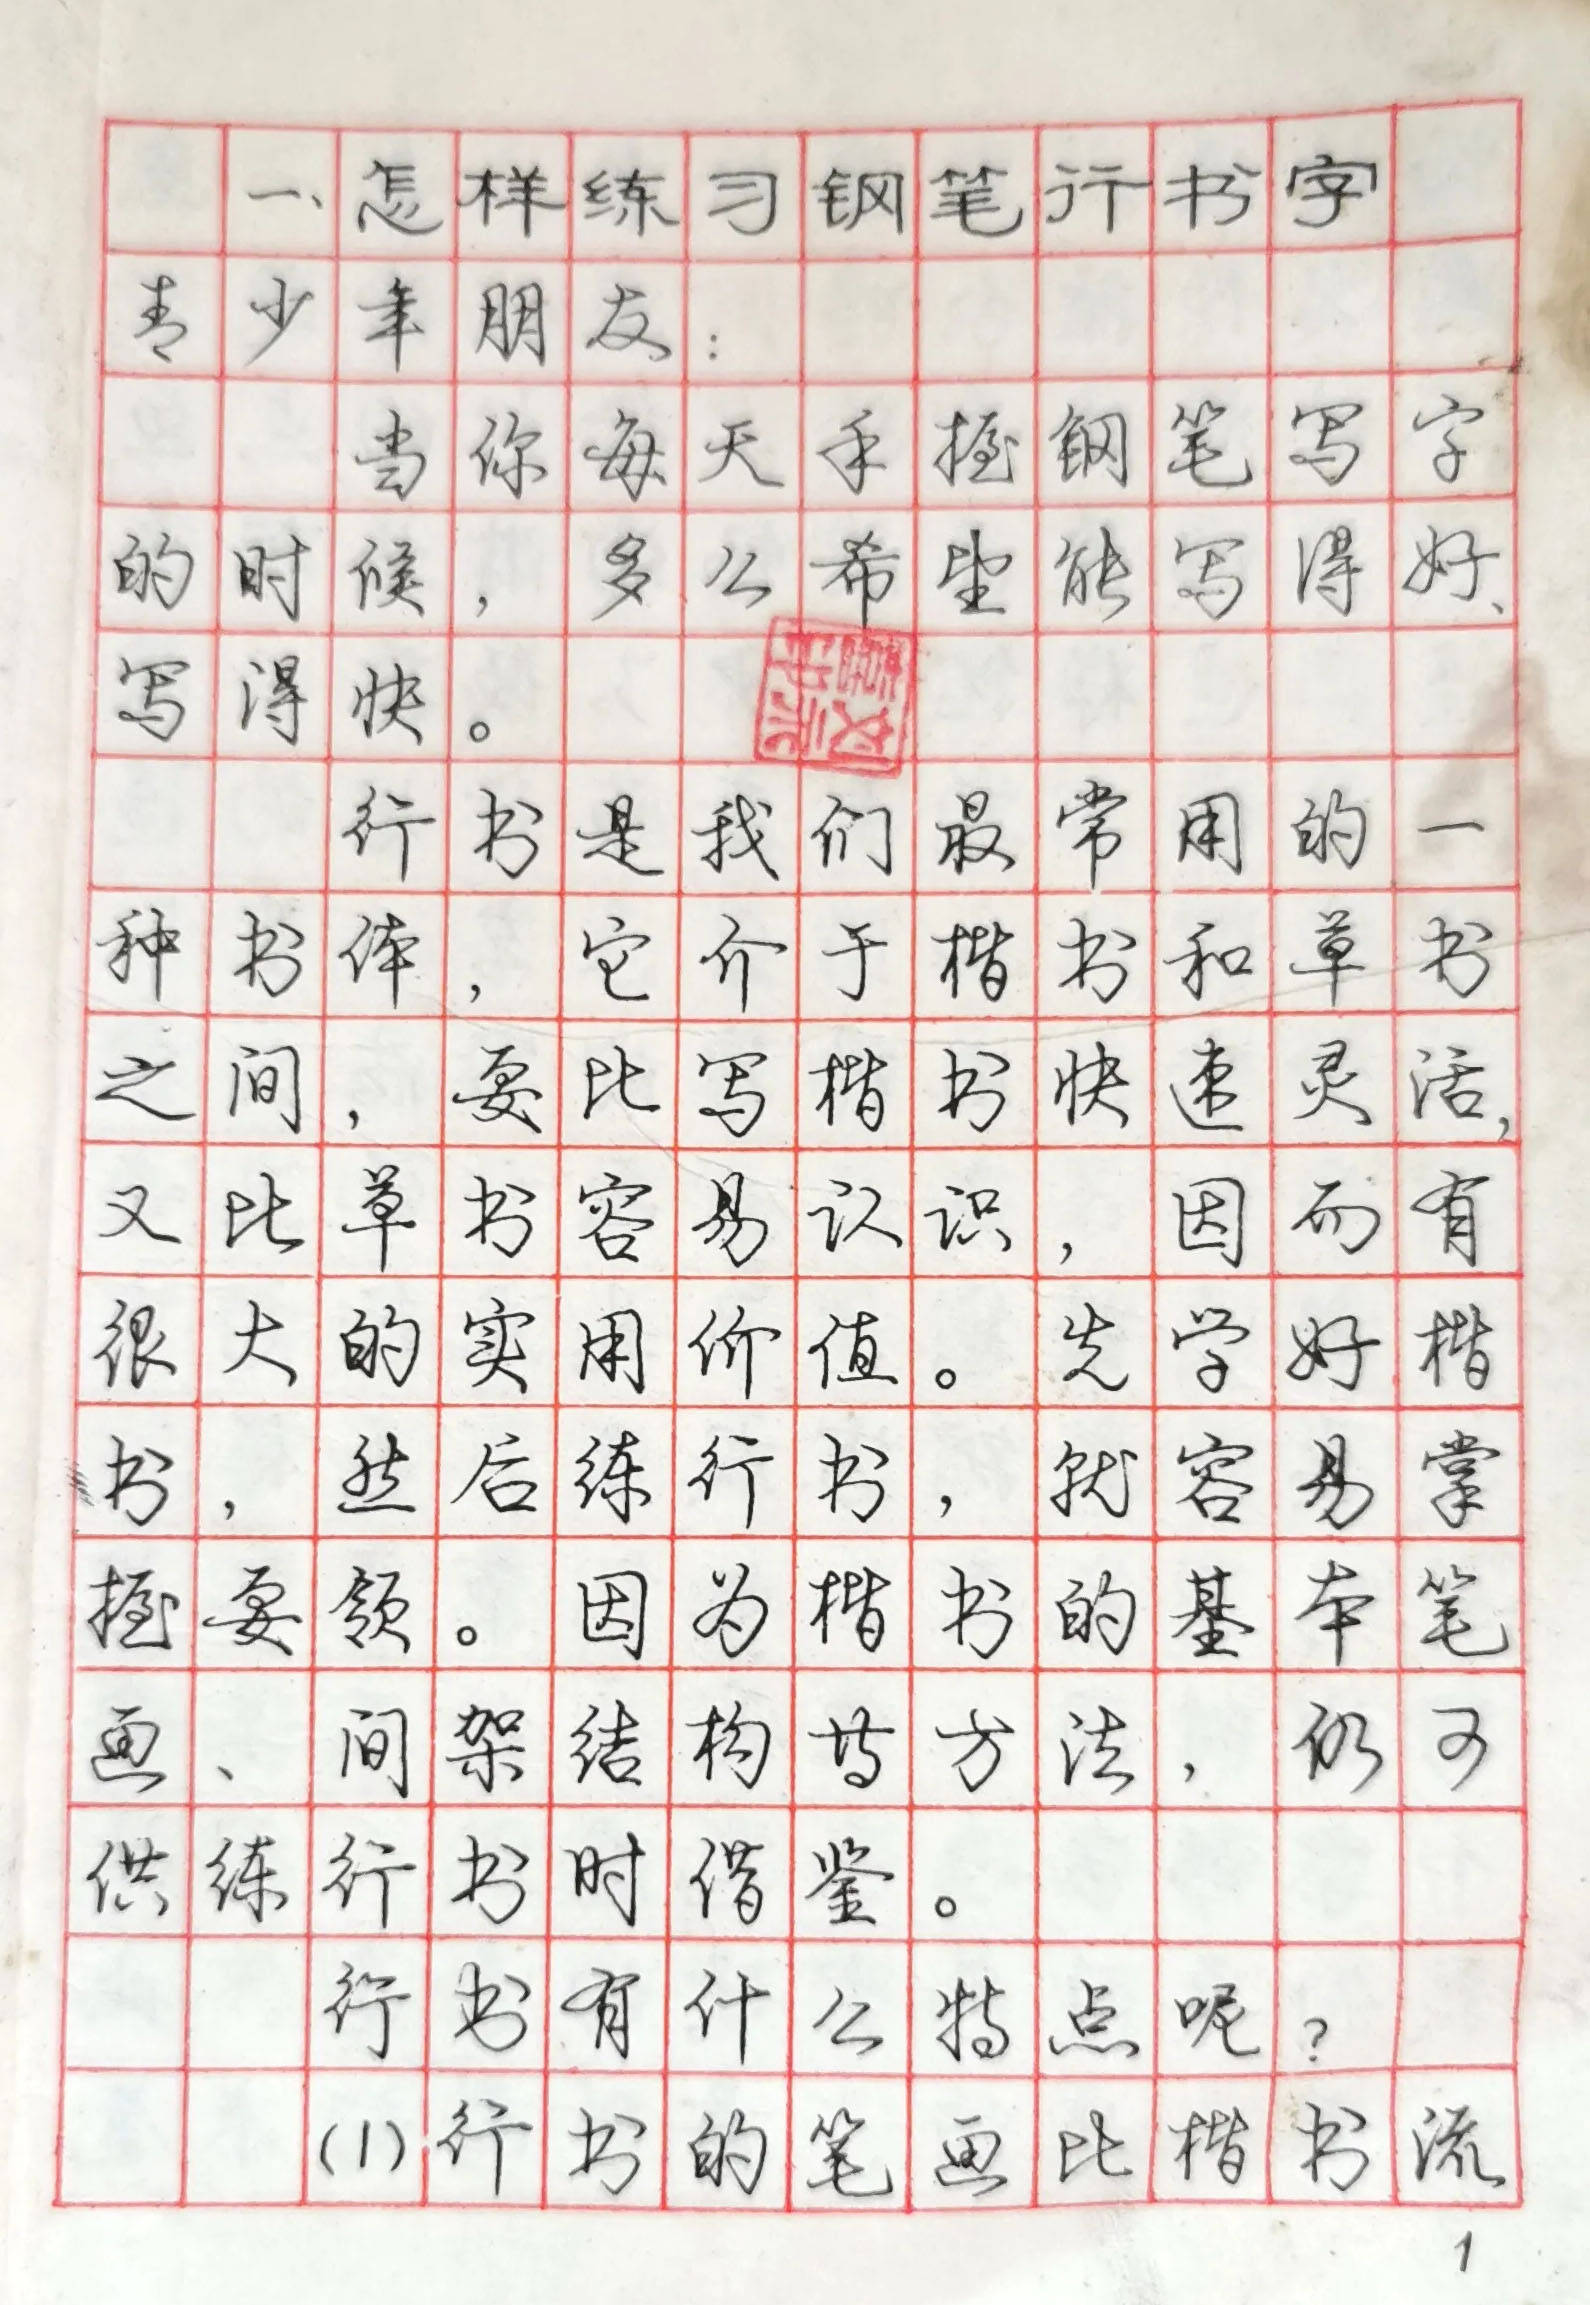 一、怎样练习钢笔行书字
青少年朋友：
当你每天手握钢笔写字
的时候，多么希望能写得好、
写得快。
行书是我们最常用的一
种书体，它介于楷书和草书
之间，要比写楷书快速灵活，
又比草书容易认识，因而有
很大的实用价值。先学好楷
书，然后练行书，就容易掌
握要领。因为楷书的基本笔
画、间架结构等方法，仍可
供练行书时借鉴。
行书有什么特点呢？
(1)行书的笔画比楷书流
1